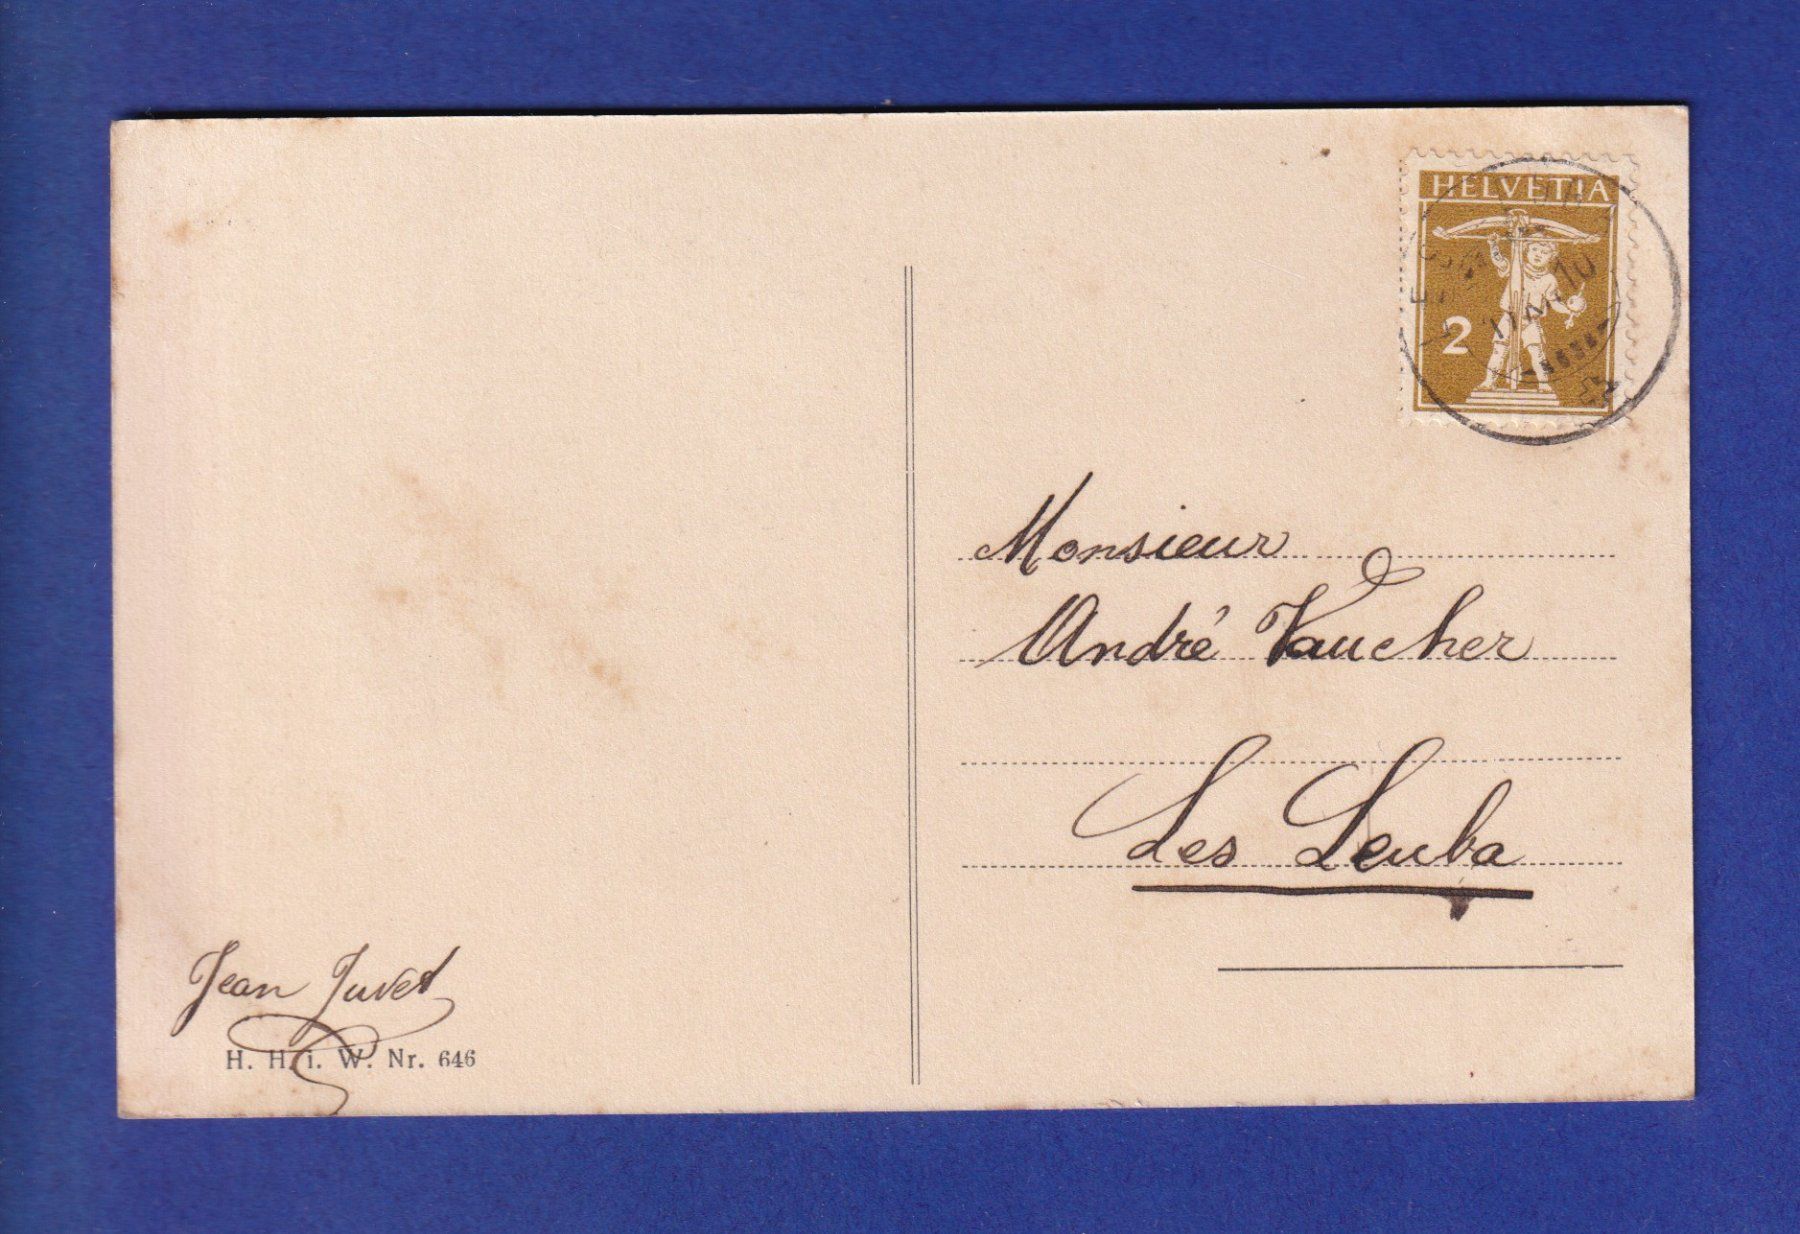 HELVETIA
2
Monsieur
André Vaucher
Les Leuba
Jean Juvet
H. H. i. W. Nr. 646